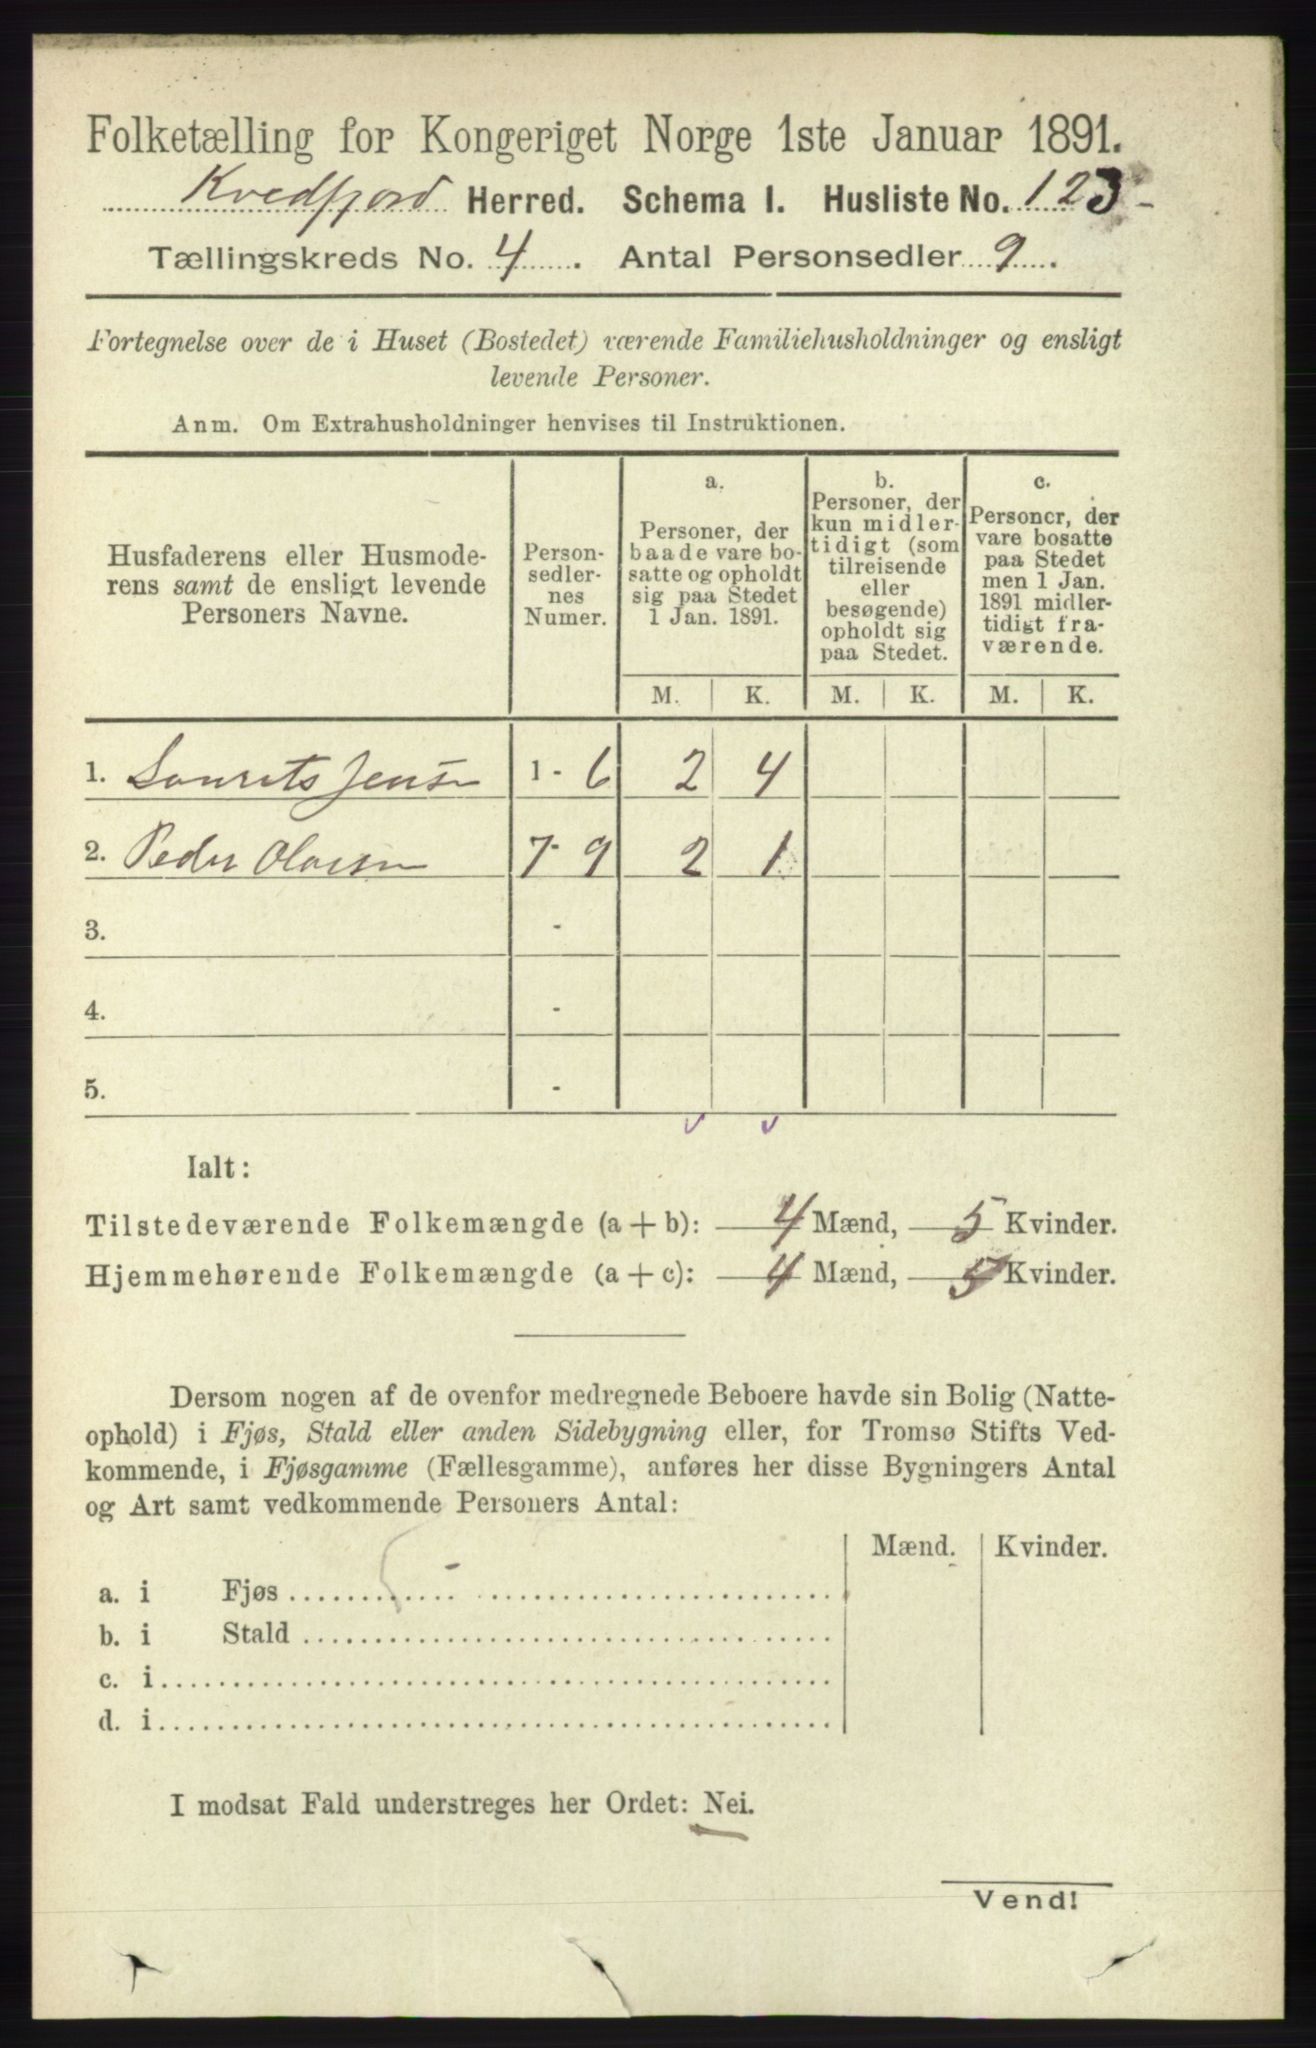 Folketælling for Kongeriget Norge 1ste Januar 1891.
Kvedfjord Herred. Schema I. Husliste No. 123
Tællingskreds No. 4. Antal Personsedler 9.
Fortegnelse over de i Huset (Bostedet) værende Familiehusholdninger og ensligt
levende Personer.
Anm. Om Extrahusholdninger henvises til Instruktionen.
Husfaderens eller Husmode-
rens samt de ensligt levende
Personers Navne.
Person-
sedler-
nes
Numer.
a.
Personer, der
baade vare bo-
satte og opholdt
sig paa Stedet
1 Jan. 1891.
b.
Personer, der
kun midler-
tidigt (som
tilreisende
eller
besøgende)
opholdt sig
paa Stedet.
c.
Personer, der
vare bosatte
paa Stedet
men 1 Jan.
1891 midler-
tidigt fra-
værende.
M. K. M. K. M. K.
1. Laurits Jensen 1 - 6 2 4
2. Peder Olaisen 7 - 9 2 1
3. -
4. -
5. -
Ialt:
Tilstedeværende Folkemængde (a + b): 4 Mænd, 5 Kvinder.
Hjemmehørende Folkemængde (a + c): 4 Mænd, 5 Kvinder.
Dersom nogen af de ovenfor medregnede Beboere havde sin Bolig (Natte-
ophold) i Fjøs, Stald eller anden Sidebygning eller, for Tromsø Stifts Ved-
kommende, i Fjøsgamme (Fællesgamme), anføres her disse Bygningers Antal
og Art samt vedkommende Personers Antal:
Mænd. Kvinder.
a. i Fjøs
b. i Stald
c. i
d. i
I modsat Fald understreges her Ordet: Nei.
Vend!